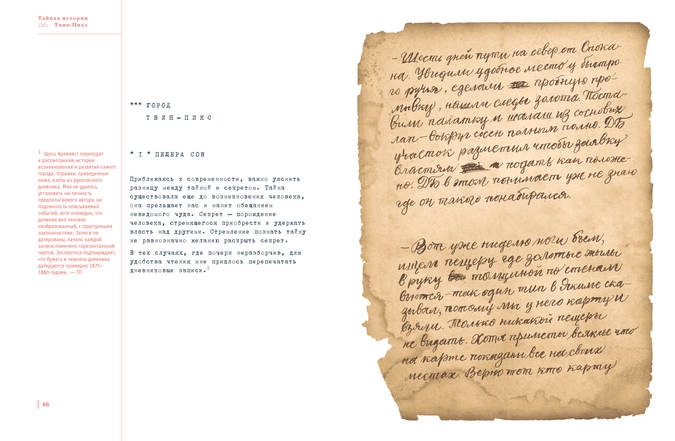 Тайная история
Твин-Пикс
*** ГОРОД
ТВИН-ПИКС
* I * ПЕЩЕРА СОВ
Приближаясь к современности, важно уяснить
разницу между тайной и секретом. Тайна
существовала еще до возникновения человека,
она прельщает нас и манит обещанием
неведомого чуда. Секрет — порождение
человека, стремящегося приобрести и удержать
власть над другими. Стремление познать тайну
не равнозначно желанию раскрыть секрет.
В тех случаях, где почерк неразборчив, для
удобства чтения мне пришлось перепечатать
дневниковые записи.1
1 Здесь Архивист переходит
к рассмотрению истории
возникновения и развития самого
города. Отрывки, приведенные
ниже, взяты из рукописного
дневника. Мне не удалось
установить ни личность
предполагаемого автора, ни
подлинность описываемых
событий, хотя очевидно, что
дневник вел человек
необразованный, с преступными
наклонностями. Записи не
датированы, начало каждой
записи помечено горизонтальной
чертой. Экспертиза подтверждает,
что бумага и чернила дневника
датируются примерно 1875–
1880 годами. — ТП
66
– Шесть дней пути на север от Спока-
на. Увидили удобное место у быстро
го ручья, сделали пробную про-
мывку, нашли следы золота. Поста-
вили палатку и шалаш из сосновых
лап – вокруг сосен полным полно. ДБ
участок разметил чтобы заявку
властям подать как положе-
но. ДБ в этом понимает уж не знаю
где он такого понабирался.
– Вот уже неделю ноги бьем,
ищем пещеру где золотые жилы
в руку толщиной по стенам
вьются – так один тип в Якиме ска-
зывал, потому мы у него карту и
взяли. Только никакой пещеры
не видать. Хотя приметы всякие что
на карте показаны все на своих
местах. Верно тот кто карту